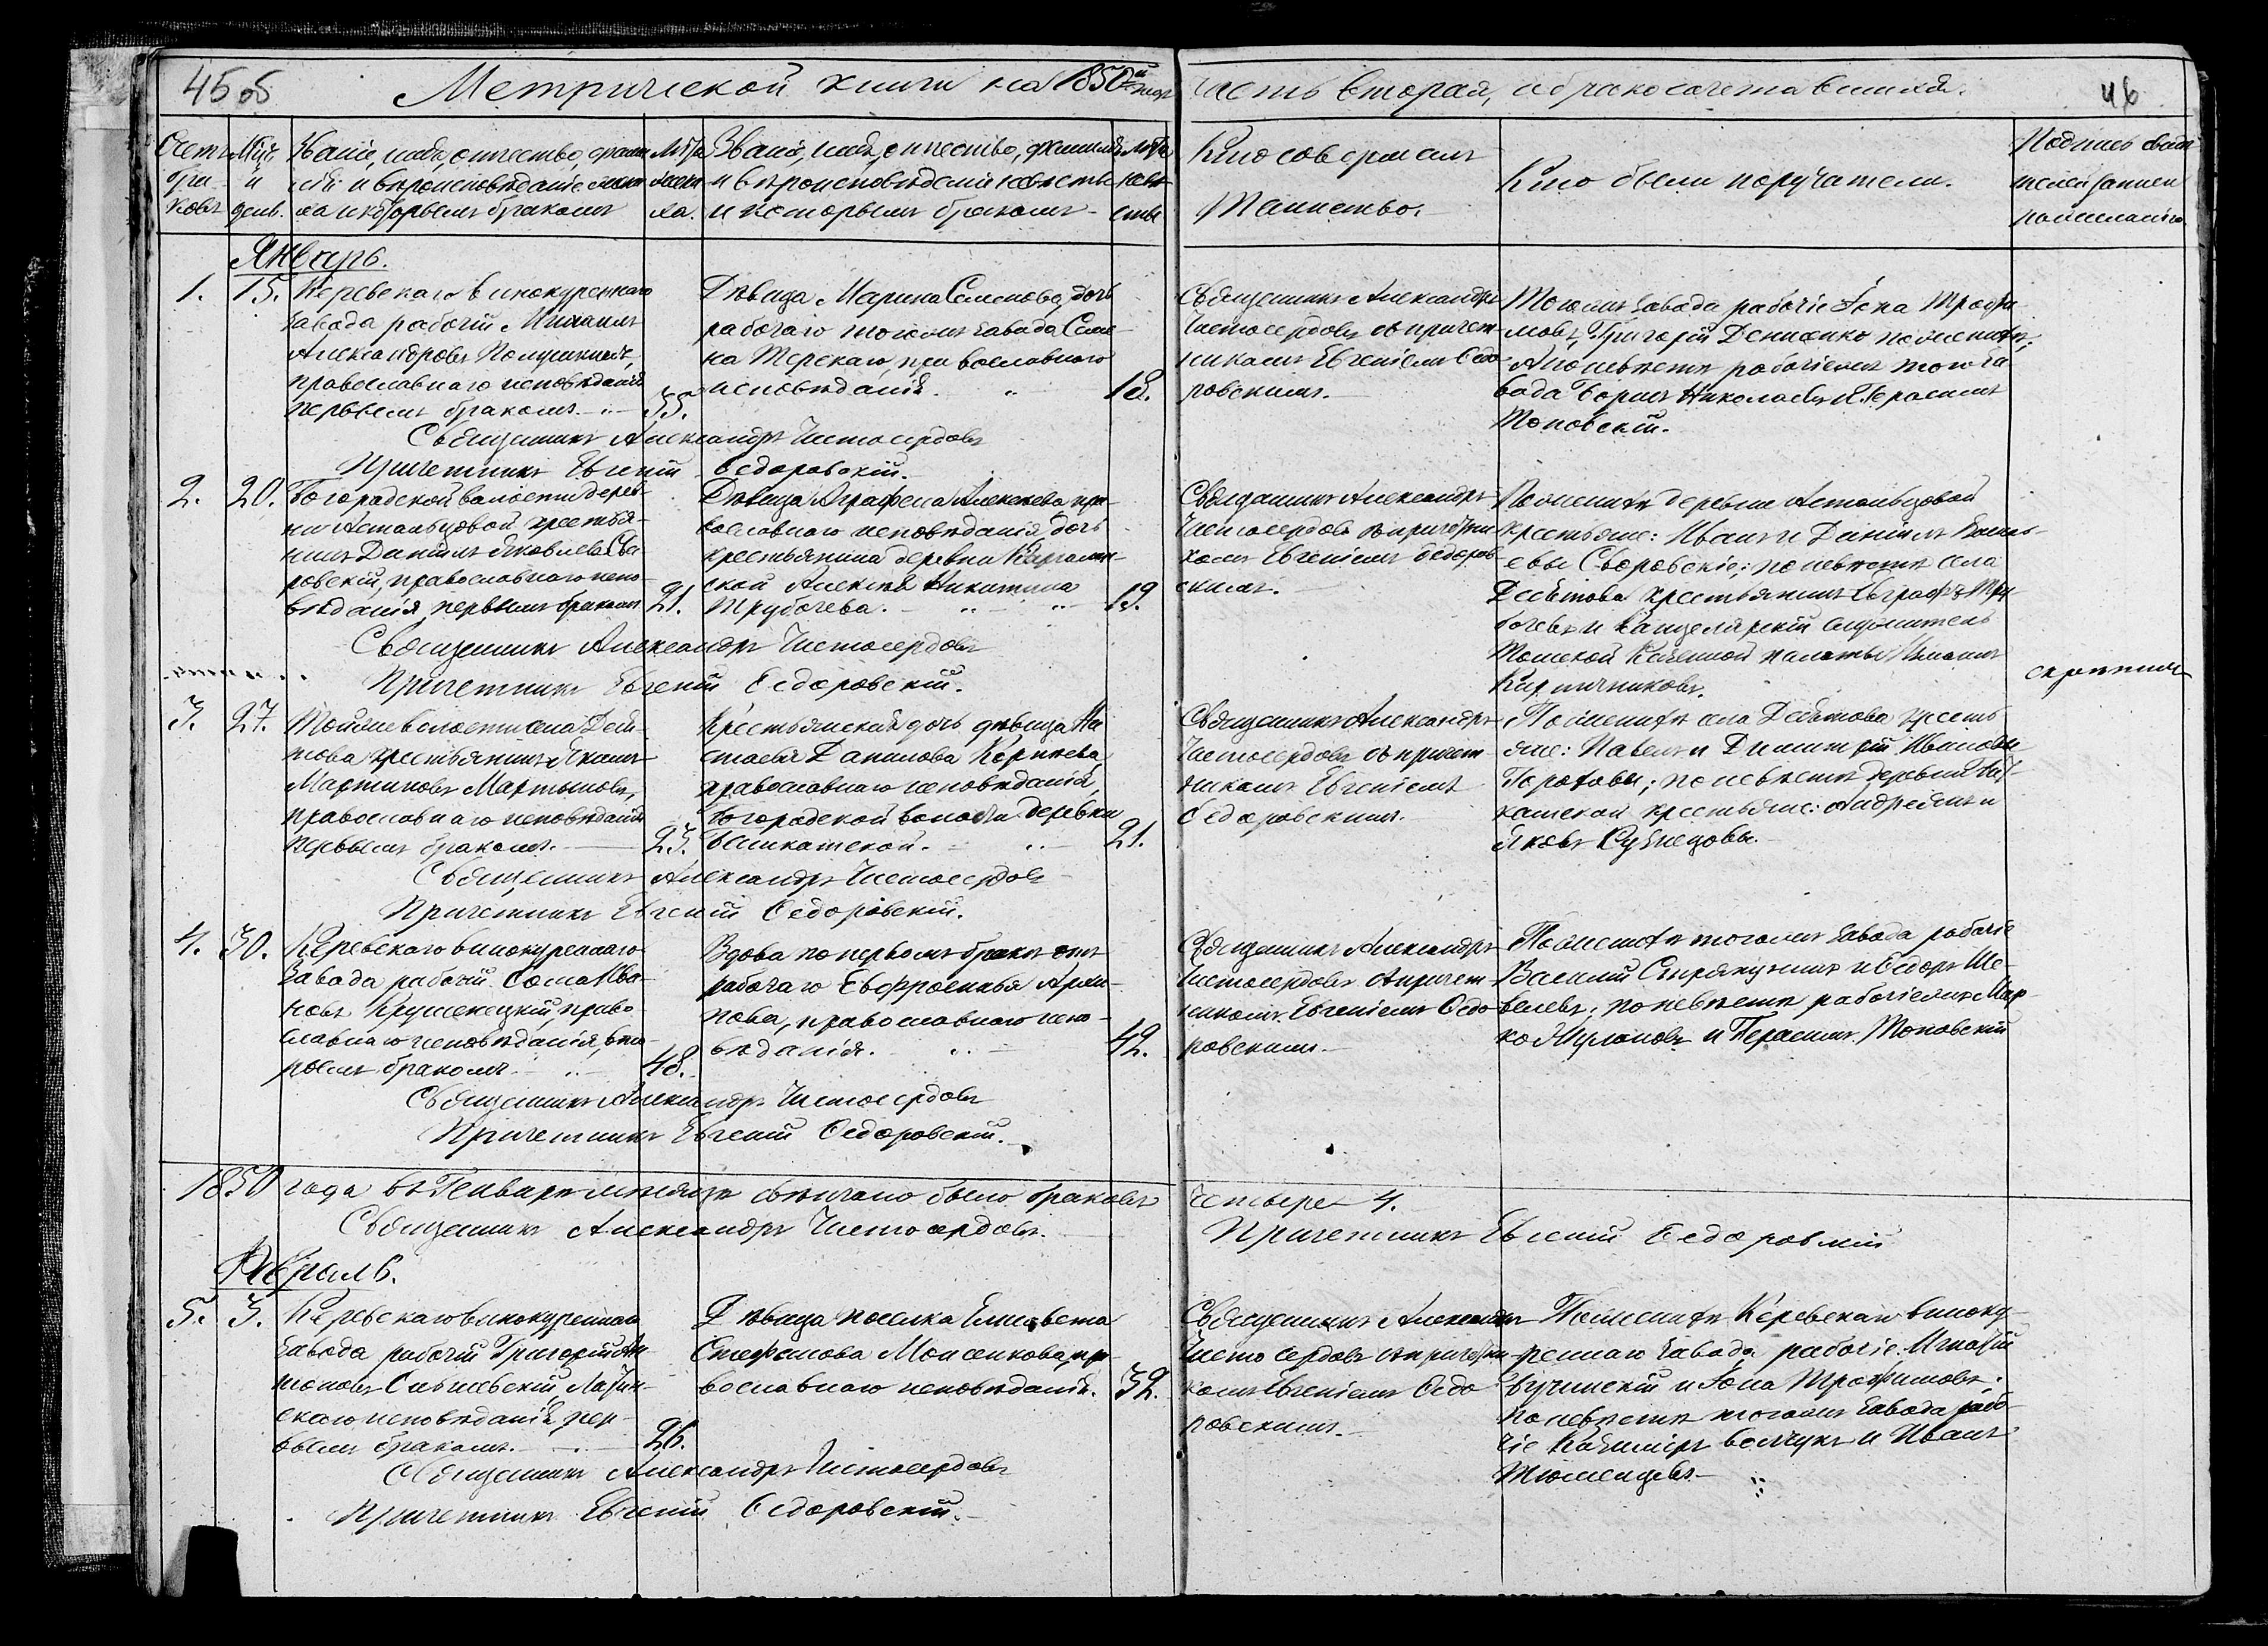 45 об
Метрической книги на 1850й год
часть вторая, о бракосочетавшихся.
46
Счетъ браковъ
Мѣс. и день.
Званіе, имя, отчество, фамилія и вѣроисповѣданіе жениха и которымъ бракомъ
Лѣта жениха.
Званіе, имя, отчество, фамилія и вѣроисповѣданіе невѣсты и которымъ бракомъ
Лѣта невѣсты
Кто совершалъ Таинство.
Кто были поручатели.
Подпись свидѣтелей записи по желанію
Январь.
1.
15.
Керевскаго винокуреннаго
завода рабочій Михаилъ
Александровъ
православнаго исповѣданія
первымъ бракомъ.
35.
Дѣвица Марина Семенова, дочь
рабочаго тогожъ завода Семе-
на Терскаго, православнаго
исповѣданія.
18.
Священникъ Александръ
Чистосердовъ съ причет-
никомъ Евгеніемъ Ѳедо-
ровскимъ.
Тогожъ завода рабочіе Іона Трофи
мовъ, Григорій Денисенко по женихѣ;
А по невѣстѣ рабочіежъ того за
вода Борисъ Николаевъ и Герасимъ
Топовскій.
Священникъ Александръ Чистосердовъ
Причетникъ Евгеній Ѳедоровскій.
2.
20.
Богородской волости дерев-
ни Астальцовой крестья-
нинъ Даніилъ Яковлевъ Сва
ровскій, православнаго испо-
вѣданія, первымъ бракомъ
21.
Дѣвица Аграфена Алексѣева пра-
вославнаго исповѣданія, дочь
крестьянина деревни
ской Алексѣя Никитина
Трубачева.
19.
Священникъ Александръ
Чистосердовъ съ причетни
комъ Евгеніемъ Ѳедоров-
скимъ.
По женихѣ деревни Астальцовой
крестьяне: Иванъ и Даніилъ Василь-
евы Сваровскіе; по невѣстѣ села
Десятова крестьянинъ Евграфъ Тру
бачевъ и Канцелярскій служитель
Томской Казенной палаты Михаилъ
Кирпичниковъ.
Священникъ Александръ Чистосердовъ
Причетникъ Евгеній Ѳедоровскій.
3.
27.
Тойже волости села Деся-
това крестьянинъ
Мартиновъ Мартыновъ,
православнаго исповѣданія
первымъ бракомъ.
23.
Крестьянская дочь дѣвица На
стасья Данилова Корнѣева,
православнаго исповѣданія,
Богородской волости деревни
21.
Священникъ Александръ
Чистосердовъ съ причет
никомъ Евгеніемъ
Ѳедоровскимъ.
По женихѣ села Десятова кресть
яне: Павелъ и Димитрій Ивановы
по невѣстѣ деревни
крестьяне: Андрей и
Яковъ Кузнецовы.
Священникъ Александръ Чистосердовъ
Причетникъ Евгеній Ѳедоровскій.
4.
30.
Керевскаго винокуреннаго
завода рабочій Ѳома Ива-
новъ право
славнаго исповѣданія, вто-
рымъ бракомъ
48.
Вдова по первомъ бракѣ
рабочаго Евфросинья
православнаго испо-
вѣданія.
42.
Священникъ Александръ
Чистосердовъ съ причет
никомъ Евгеніемъ Ѳедо
ровскимъ.
По женихѣ тогожъ завода рабочіе
Василій и Ѳедоръ Ше-
велевъ; по невѣстѣ рабочіежъ Мар-
ко и Герасимъ Топовскій
Священникъ Александръ Чистосердовъ
Причетникъ Евгеній Ѳедоровскій.
1850 года въ Генварѣ мѣсяцѣ свѣнчано было браковъ
четыре 4.
Священникъ Александръ Чистосердовъ.
Причетникъ Евгеній Ѳедоровскій
Февраль.
5.
3.
Керевскаго винокуреннаго
завода рабочій Григорій Ан
тоновъ Латин-
скаго исповѣданія, пер-
вымъ бракомъ.
26.
Дѣвица поселка Елисавета
Стефанова Моисенкова, пра
вославнаго исповѣданія.
32.
Священникъ Александръ
Чистосердовъ съ причетни
комъ Евгеніемъ Ѳедо
ровскимъ.
По женихѣ Керевскаго виноку-
реннаго завода рабочіе Игнатій
и Іона Трофимовъ;
по невѣстѣ тогожъ завода рабо-
чіе Казиміръ и Иванъ
Тюменцевъ
Священникъ Александръ Чистосердовъ
Причетникъ Евгеній Ѳедоровскій.